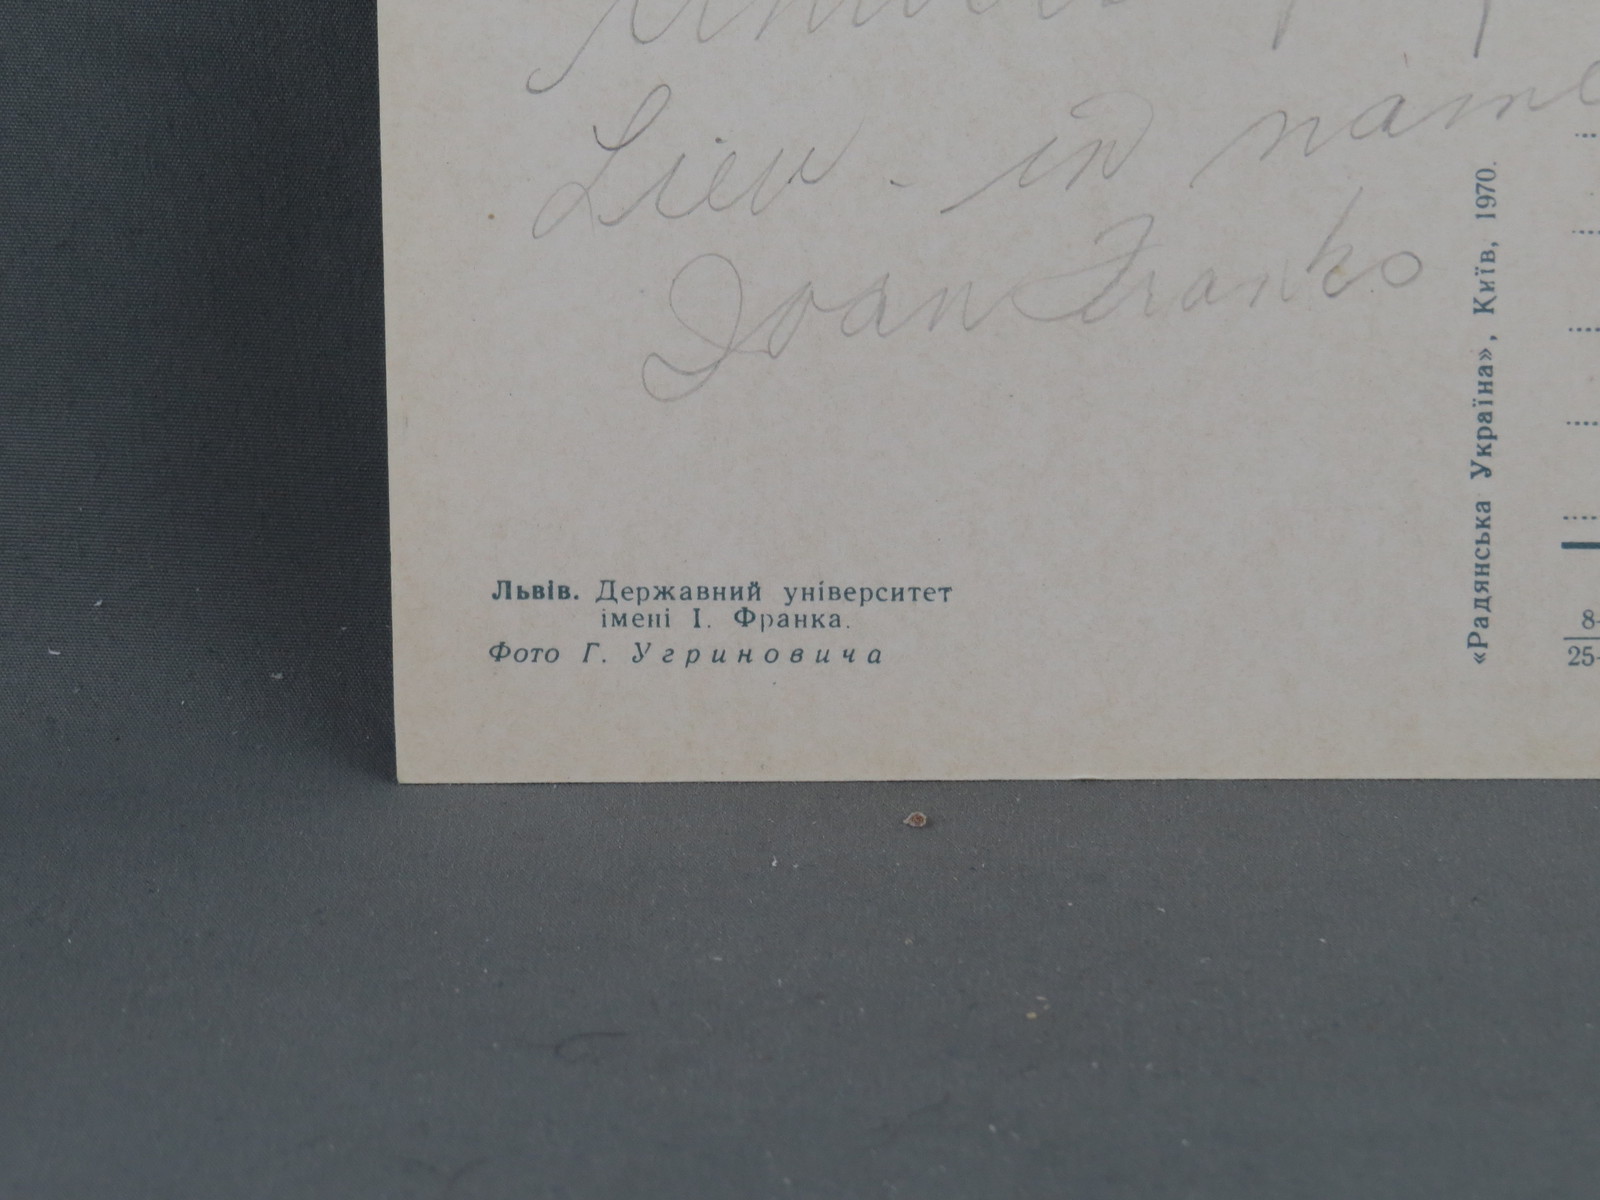 Liew - in name
Ivan Franko
Львів. Державний університет
імені І. Франка.
Фото Г. Угриновича
«Радянська Україна», Київ, 1970.
8-
25-